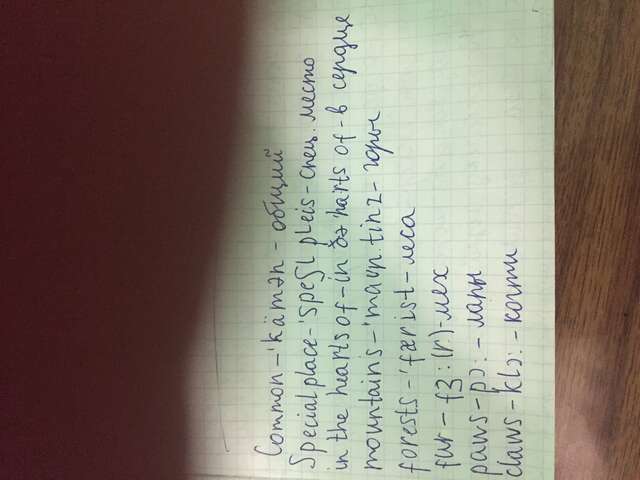 Common - 'kämən - общий
Special place - 'speʃl pleis - спец. место
in the hearts of - in ðə härts of - в сердце
mountains - 'maʊn.tinz - горы
forests - 'færist - леса
fur - fɜ:(r) - мех
paws - pɔ: - лапы
claws - klɔ: - когти